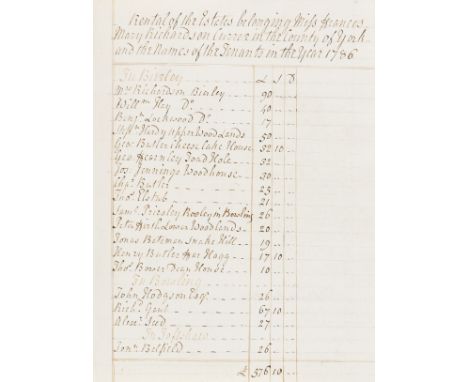 Rental of the Estates belonging Miss Frances
Mary Richardson Currer in the County of York
and the Names of the Tenants in the Year 1786
In Bierley £ S D
Mrs Richardson Bierley 90
Willm Hey Do 40
Benjn Lockwood Do 17
Hardy upper Woodlands 50
Geo Butler Cheese Cake House 32 10
Geo Fearnley Toad Hole 32
Jos Jennings Woodhouse 30
Chas Butler 25
Thos Elstub 21
Saml Priestley Rooley in Bowling 26
Peter Firth Lower Woodlands 20
Jonas Bateman Snake Hill 19
Henry Butler Har Hagg 17 10
Thos Bower Dean House 10
In Bowling
John Hodgson Esqr 26
Richd Gait 67 10
Alexr 27
In Toftshaw
Jonn Bilfield 26
£ 576 10